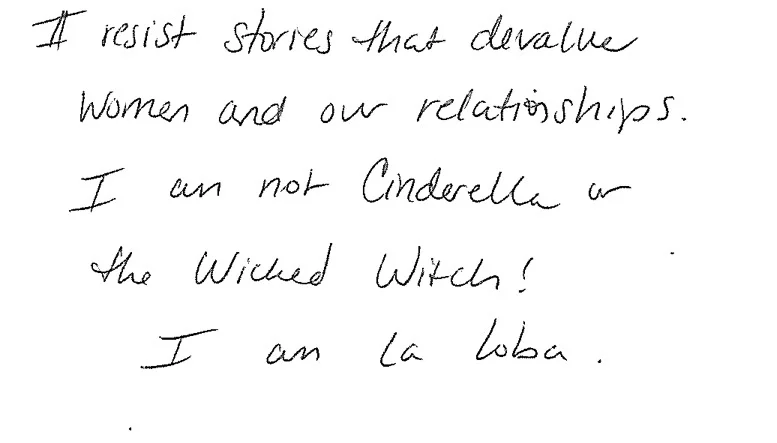 I resist stories that devalue
women and our relationships.
I am not Cinderella or
the Wicked Witch!
I am La loba.